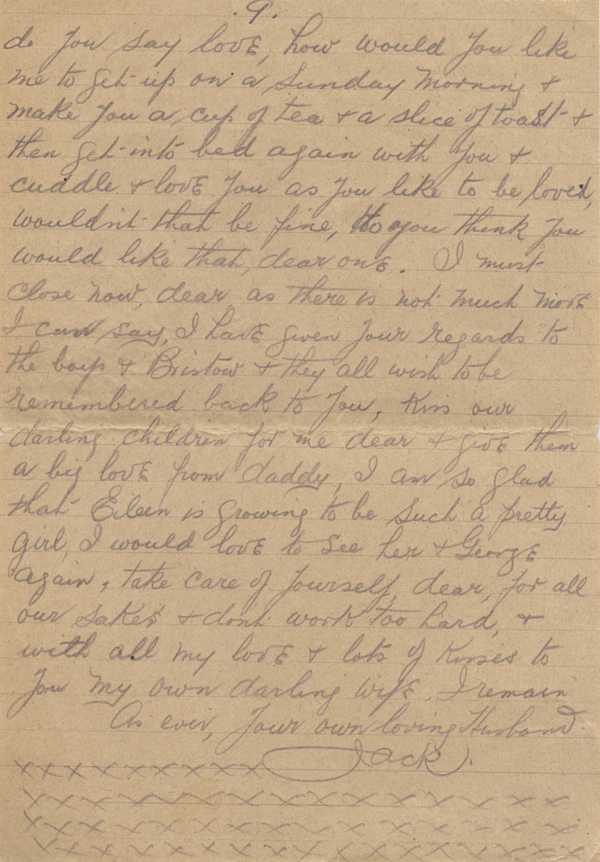 .9.
do you say love, how would you like
me to get up on a Sunday morning &
make you a cup of tea & a slice of toast &
then get into bed again with you &
cuddle & love you as you like to be loved,
wouldn't that be fine, do you think you
would like that, dear one. I must
close now, dear as there is not much more
I can say, I have given your regards to
the boys & Bristow & they all wish to be
remembered back to you, Kiss our
darling children for me dear & give them
a big love from daddy, I am so glad
that Eileen is growing to be such a pretty
girl, I would love to see her & George
again, take care of yourself, dear, for all
our sakes & dont work too hard, &
with all my love & lots of Kisses to
you my own darling wife, I remain
As ever, Your own loving Husband
Jack.
x x x x x x x x x x x x
x x x x x x x x x x x x x x x x x
x x x x x x x x x x x x x x x x x
x x x x x x x x x x x x x x x x x